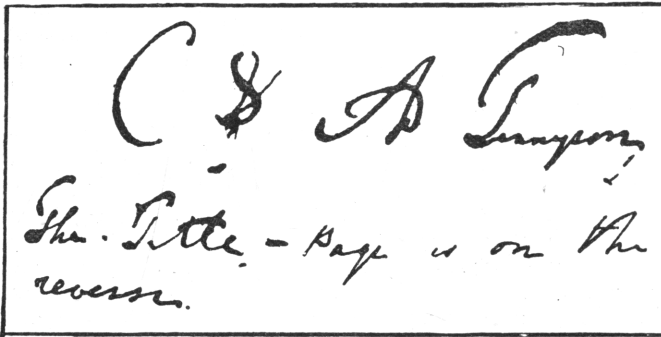 C & A Tennyson
The Title-page is on the
reverse.